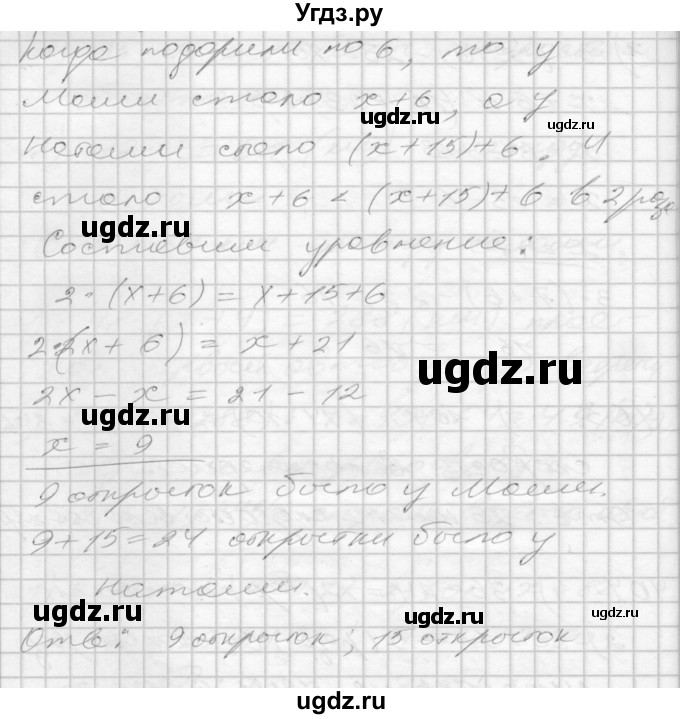 Угдз.ру
Когда подарили по 6, то у
Маши стало x+6, а у
Наташи стало (x+15)+6. И
стало x+6 < (x+15)+6 в 2 раза
Составим уравнение:
2·(x+6) = x+15+6
2·(2x+6) = x+21
2x - x = 21 - 12
x = 9
9 открыток было у Маши.
9+15=24 открытки было у
Наташи.
Отв: 9 открыток; 15 открыток
ugdz.ru
ugdz.ru
ugdz.ru
ugdz.ru
ugdz.ru
ugdz.ru
ugdz.ru
ugdz.ru
ugdz.ru
ugdz.ru